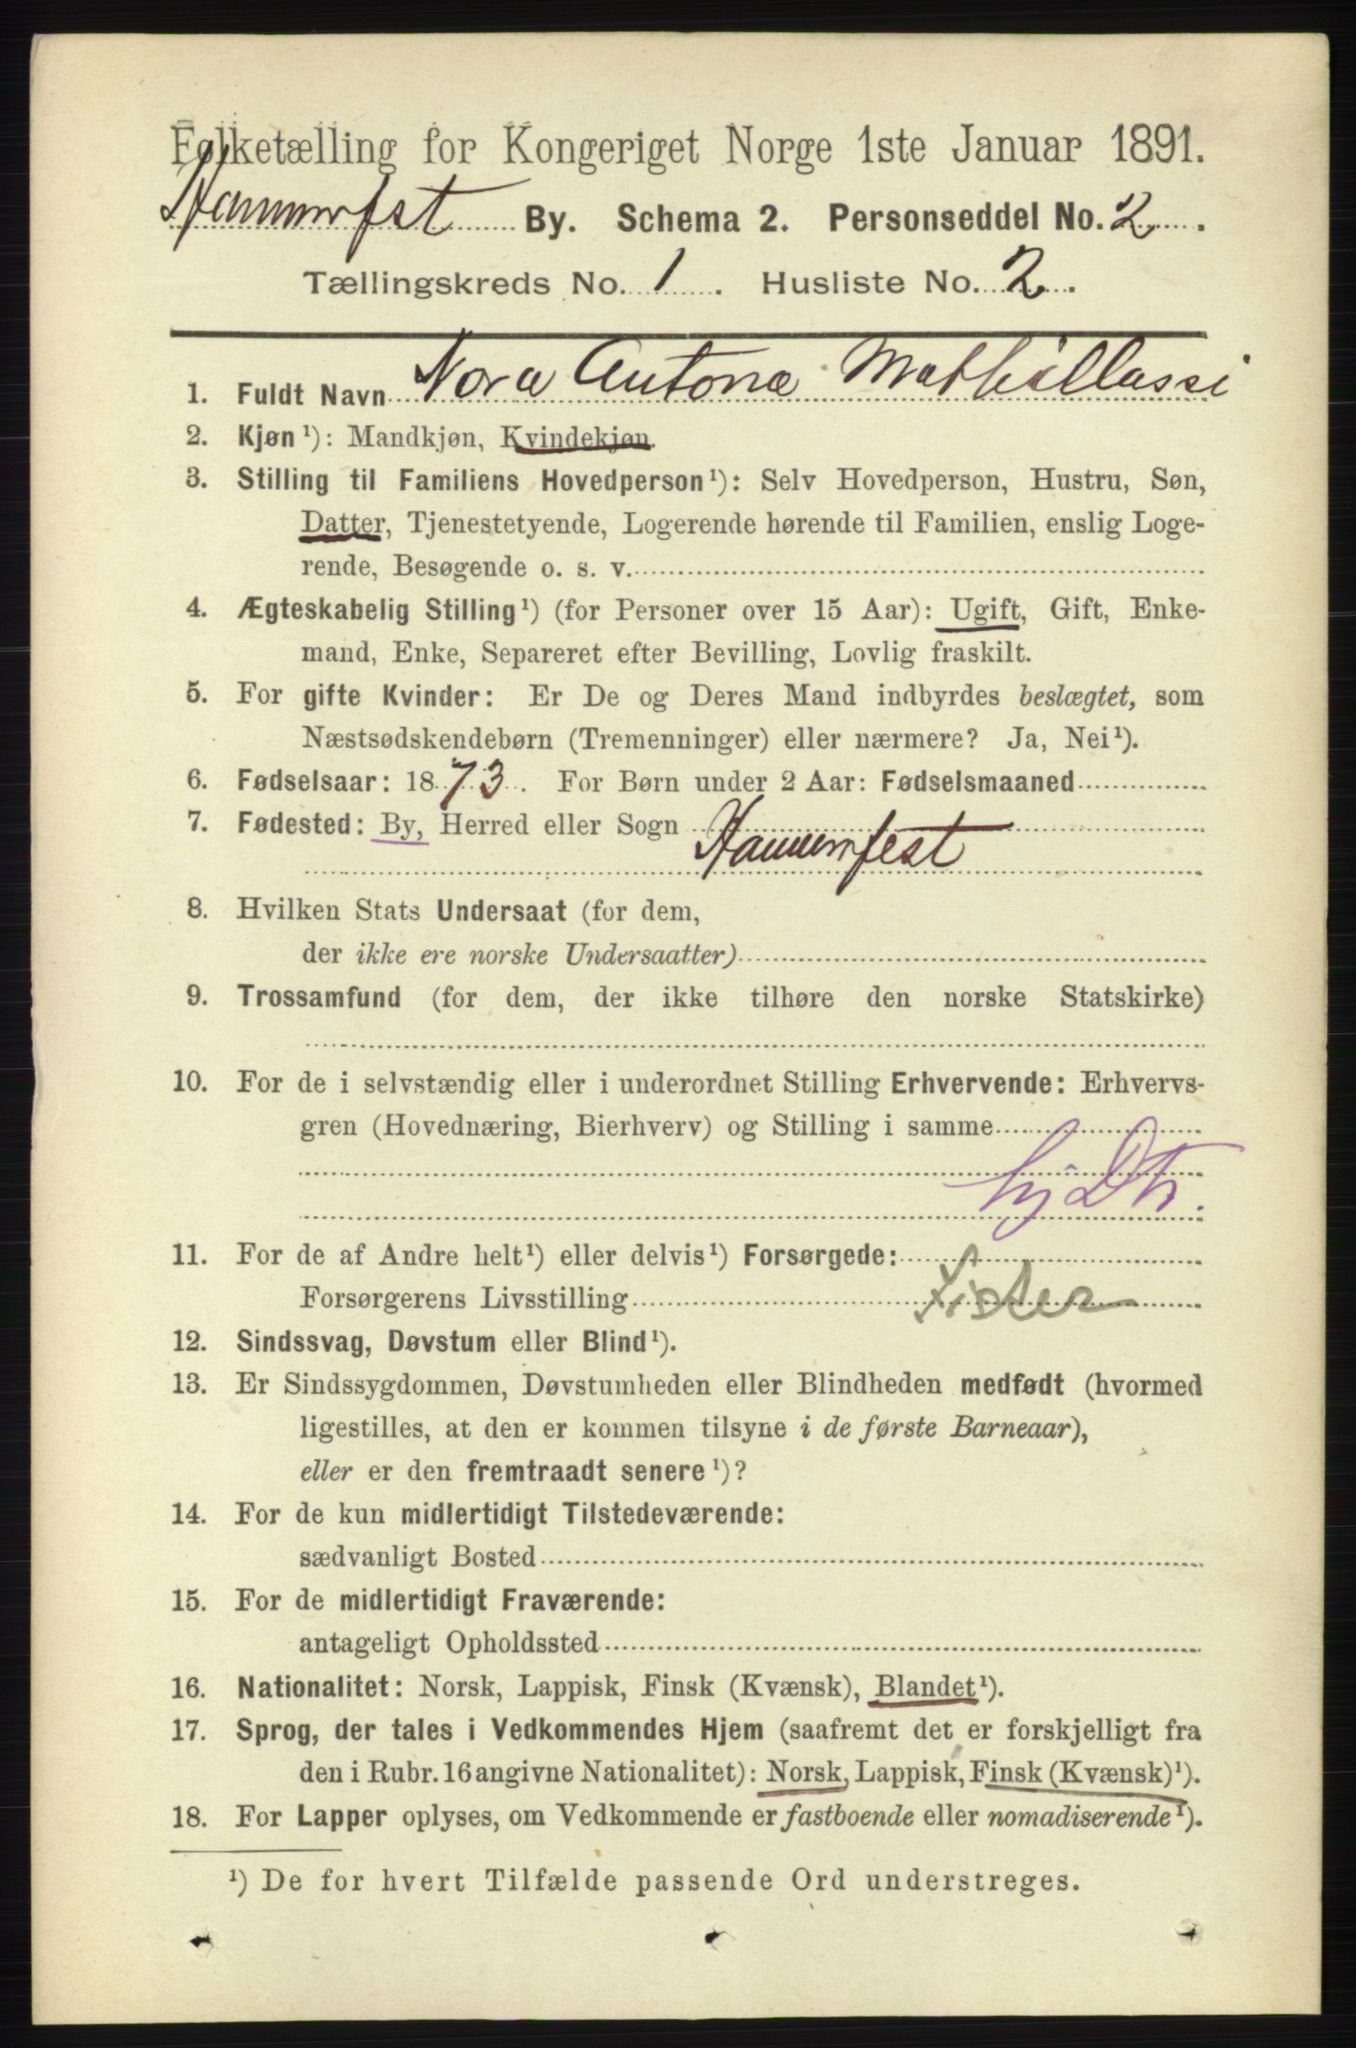 Folketælling for Kongeriget Norge 1ste Januar 1891.
Hammerfest By. Schema 2. Personseddel No. 2.
Tællingskreds No. 1. Husliste No. 2.
1. Fuldt Navn Nora Antona
2. Kjøn ¹): Mandkjøn, Kvindekjøn
3. Stilling til Familiens Hovedperson ¹): Selv Hovedperson, Hustru, Søn,
Datter, Tjenestetyende, Logerende hørende til Familien, enslig Loge-
rende, Besøgende o. s. v.
4. Ægteskabelig Stilling ¹) (for Personer over 15 Aar): Ugift, Gift, Enke-
mand, Enke, Separeret efter Bevilling, Lovlig fraskilt.
5. For gifte Kvinder: Er De og Deres Mand indbyrdes beslægtet, som
Næstsødskendebørn (Tremenninger) eller nærmere? Ja, Nei ¹).
6. Fødselsaar: 1873. For Børn under 2 Aar: Fødselsmaaned
7. Fødested: By, Herred eller Sogn
Hammerfest
8. Hvilken Stats Undersaat (for dem,
der ikke ere norske Undersaatter)
9. Trossamfund (for dem, der ikke tilhøre den norske Statskirke)
10. For de i selvstændig eller i underordnet Stilling Erhvervende: Erhvervs-
gren (Hovednæring, Bierhverv) og Stilling i samme
hj Dtr.
11. For de af Andre helt ¹) eller delvis ¹) Forsørgede:
Forsørgerens Livsstilling Fisker
12. Sindssvag, Døvstum eller Blind ¹).
13. Er Sindssygdommen, Døvstumheden eller Blindheden medfødt (hvormed
ligestilles, at den er kommen tilsyne i de første Barneaar),
eller er den fremtraadt senere ¹)?
14. For de kun midlertidigt Tilstedeværende:
sædvanligt Bosted
15. For de midlertidigt Fraværende:
antageligt Opholdssted
16. Nationalitet: Norsk, Lappisk, Finsk (Kvænsk), Blandet ¹).
17. Sprog, der tales i Vedkommendes Hjem (saafremt det er forskjelligt fra
den i Rubr. 16 angivne Nationalitet): Norsk, Lappisk, Finsk (Kvænsk) ¹).
18. For Lapper oplyses, om Vedkommende er fastboende eller nomadiserende ¹).
¹) De for hvert Tilfælde passende Ord understreges.